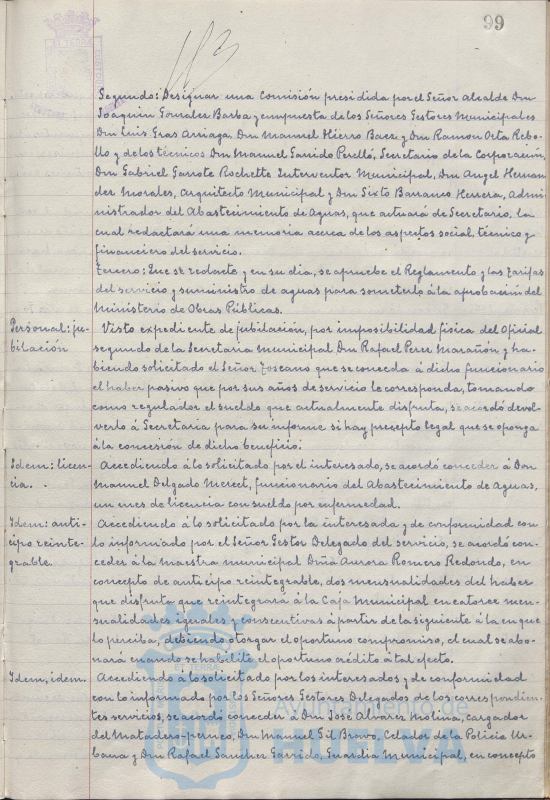 99
Segundo: Designar una Comisión presidida por el Señor Alcalde Don
Joaquin Gonzalez Barba y compuesta de los Señores Gestores Municipales
Don Luis Gras Arriaga, Don Manuel Hierro Baez y Don Ramon Orta Rebo-
llo y de los técnicos Don Manuel Garrido Perelló, Secretario de la Corporación,
Don Gabriel Garrote Rochette Interventor Municipal, Don Angel Hernan-
dez Morales, Arquitecto Municipal y Don Sixto Barranco Herrera, Admi-
nistrador del Abastecimiento de Aguas, que actuará de Secretario, la
cual redactará una memoria acerca de los aspectos social, técnico y
financiero del servicio.
Tercero: Que se redacte y en su dia, se apruebe el Reglamento y las tarifas
del servicio y suministro de aguas para someterlo á la aprobación del
Ministerio de Obras Públicas.
Personal: ju-
bilación
Visto expediente de jubilación, por imposibilidad fisica del Oficial
segundo de la Secretaria Municipal Don Rafael Perez Marañón y ha-
biendo solicitado el Señor Toscano que se conceda á dicho funcionario
el haber pasivo que por sus años de servicio le corresponda, tomando
como regulador el sueldo que actualmente disfruta, se acordó devol-
verlo á Secretaria para su informe si hay precepto legal que se oponga
á la concesión de dicho beneficio.
Idem: licen-
cia.
Accediendo á lo solicitado por el interesado, se acordó conceder á Don
Manuel Delgado Merect, funcionario del Abastecimiento de Aguas,
un mes de licencia con sueldo por enfermedad.
Idem: anti-
cipo reinte-
grable.
Accediendo á lo solicitado por la interesada y de conformidad con
lo informado por el Señor Gestor Delegado del servicio, se acordó con-
ceder á la maestra municipal Doña Aurora Romero Redondo, en
concepto de anticipo reintegrable, dos mensualidades del haber
que disfruta que reintegrará á la Caja Municipal en catorce men-
sualidades iguales y consecutivas á partir de la siguiente á la en que
lo perciba, debiendo otorgar el oportuno compromiso, el cual se abo-
nará cuando se habilite el oportuno crédito á tal efecto.
Idem, idem.
Accediendo á lo solicitado por los interesados y de conformidad
con lo informado por los Señores Gestores Delegados de los correspondien-
tes servicios, se acordó conceder á Don José Alvarez Molina, cargador
del Matadero-perneo, Don Manuel Gil Bravo, Celador de la Policia Ur-
bana y Don Rafael Sanchez Garrido, Guardia Municipal, en concepto
Ayuntamiento de
HUELVA